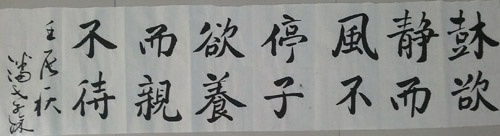 樹欲
静而
風不
停子
欲養
而親
不待
壬辰秋
潘